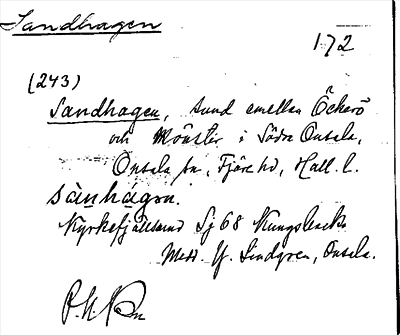 Sandhagen
172
(243)
Sandhagen, sund emellan Öckerö
och Mönster i Södra Onsala,
Onsala sn, Fjäre hd, Hall. l.
sànhágen.
Kyrkefjällsund Sj 68 Kungsbacka
Medd. Lindgren, Onsala.